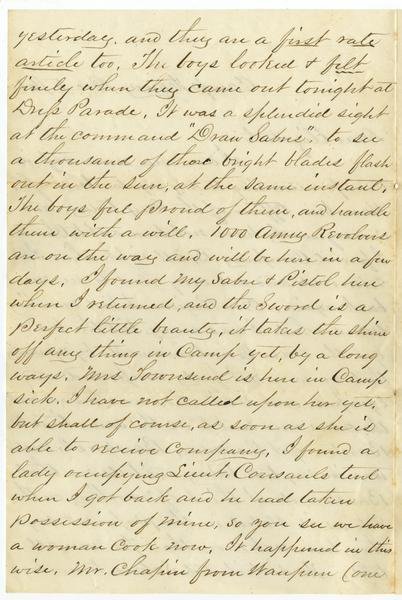 yesterday. and they are a first rate
article too. The boys looked & felt
finely when they came out tonight at
Dress Parade, It was a splendid sight
at the command "Draw Sabre", to see
a thousand of those bright blades flash
out in the sun, at the same instant.
The boys feel proud of them, and handle
them with a will. 1000 Army Revolvers
are on the way and will be here in a few
days. I found my Sabre & Pistol here
when I returned, and the Sword is a
perfect little beauty, it takes the shine
off any thing in Camp yet, by a long
ways. Mrs Townsend is here in Camp
sick, I have not called upon her yet,
but shall of course, as soon as she is
able to receive company, I found a
lady occupying Lieut. Consauls tent
when I got back and he had taken
possession of mine, so you see we have
a woman Cook now. It happened in this
wise. Mr. Chapin from Waupun (one